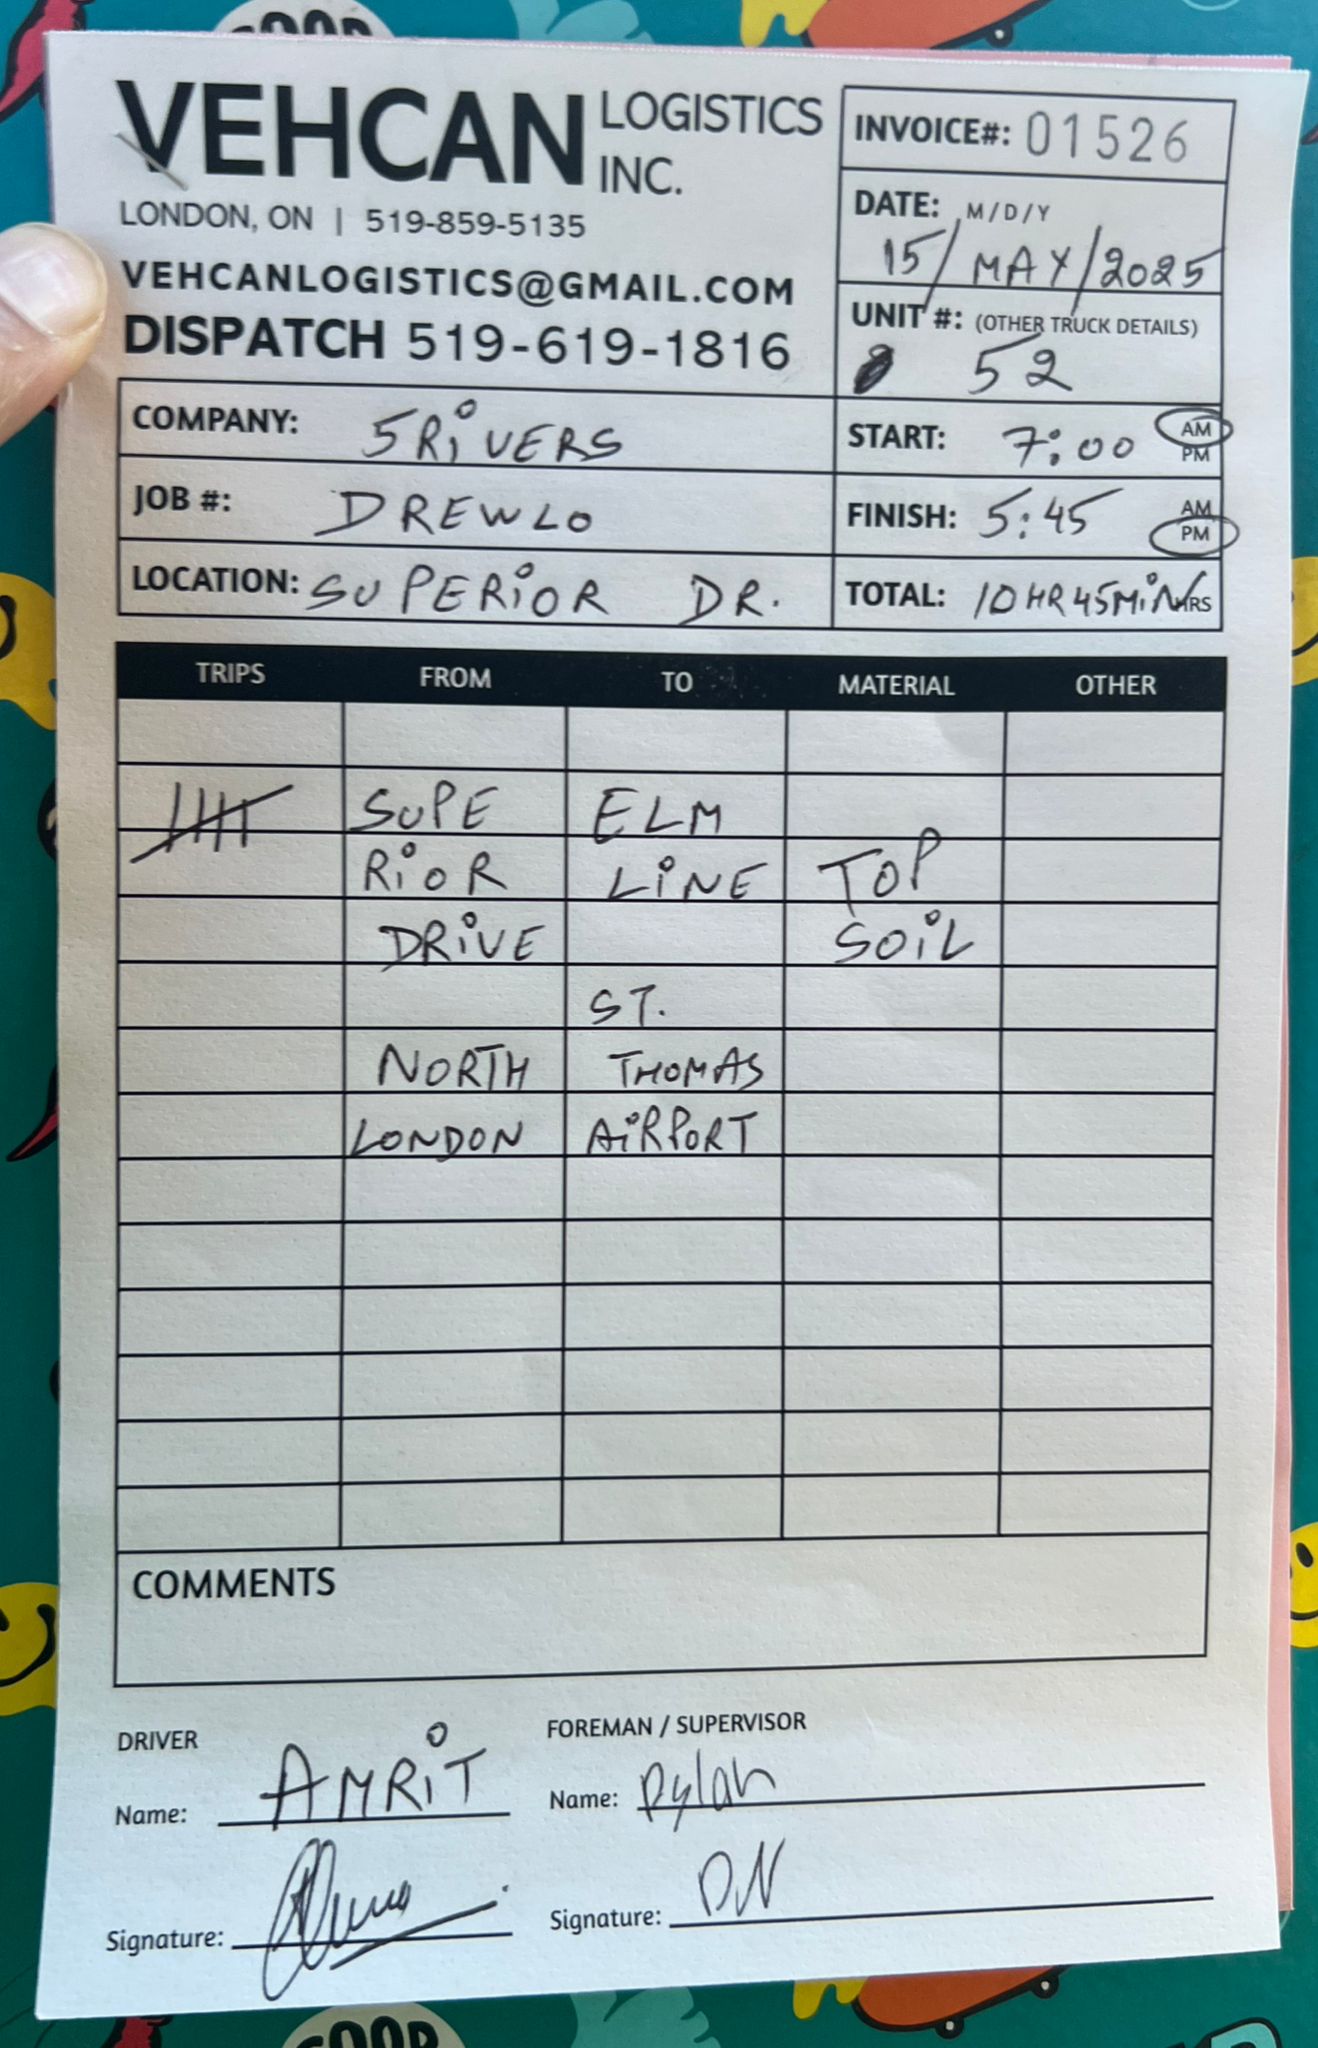 VEHCAN LOGISTICS INC.
LONDON, ON | 519-859-5135
VEHCANLOGISTICS@GMAIL.COM
DISPATCH 519-619-1816
INVOICE#: 01526
DATE: M/D/Y
15/MAY/2025
UNIT #: (OTHER TRUCK DETAILS)
52
COMPANY: 5RiVERS
JOB #: DREWLO
LOCATION: SUPERiOR DR.
START: 7:00 AM PM
FINISH: 5:45 AM PM
TOTAL: 10HR45MiN HRS
TRIPS FROM TO MATERIAL OTHER
SUPE ELM
RiOR LiNE TOP
DRiVE SOiL
ST.
NORTH THOMAS
LONDON AiRPORT
COMMENTS
DRIVER
Name: AMRiT
Signature:
FOREMAN / SUPERVISOR
Name: Dylan
Signature: DN
GOOD
GOOD